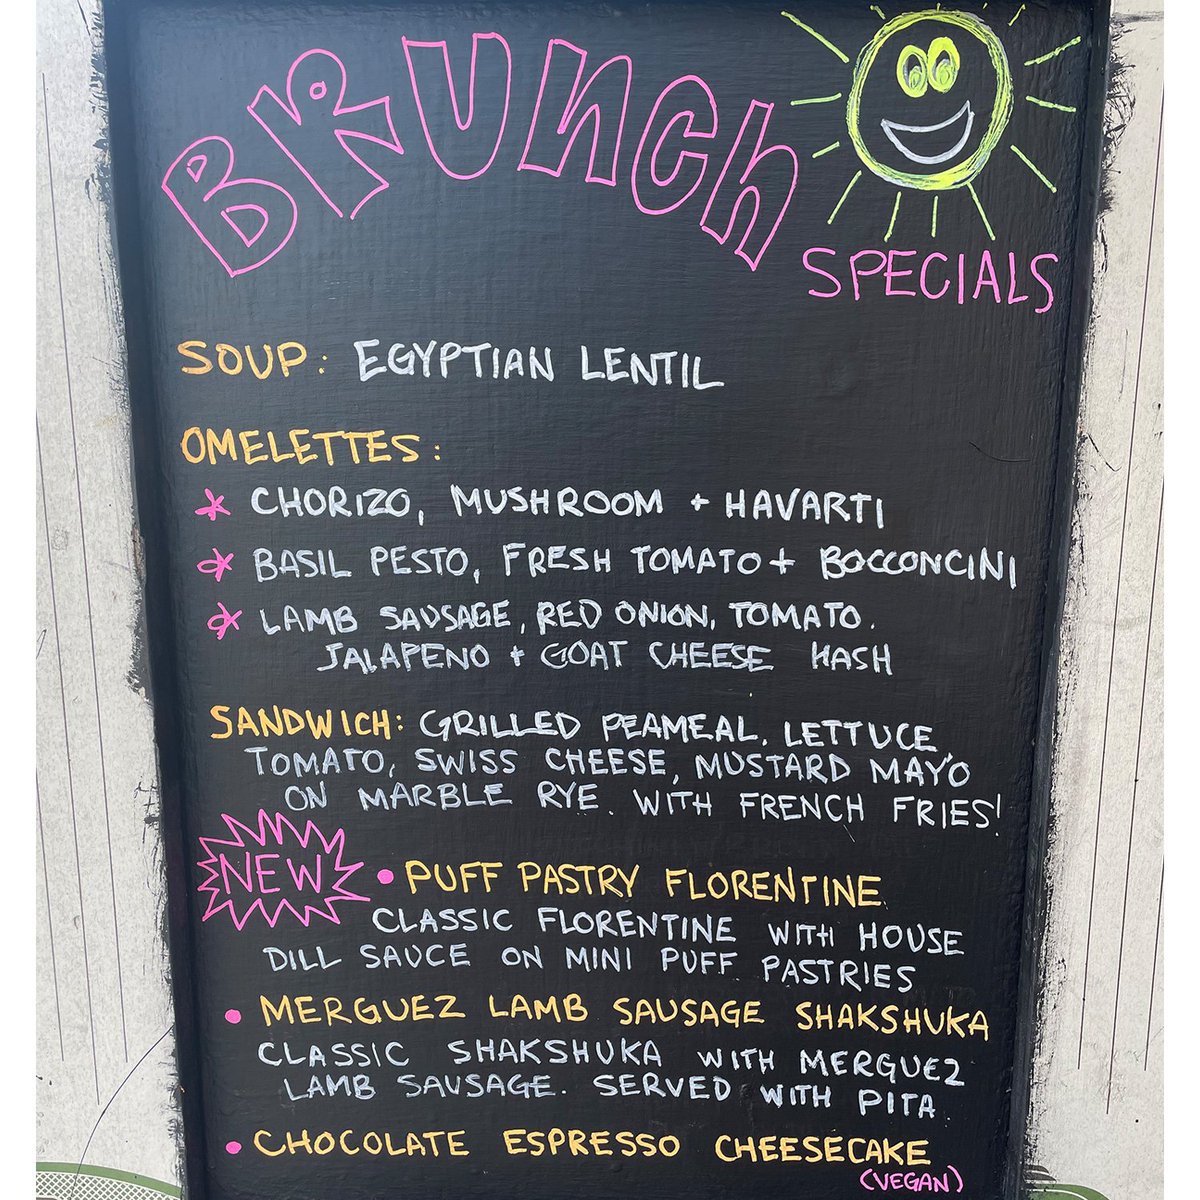 BRUNCH
SPECIALS
SOUP: EGYPTIAN LENTIL
OMELETTES:
* CHORIZO, MUSHROOM + HAVARTI
* BASIL PESTO, FRESH TOMATO + BOCCONCINI
* LAMB SAUSAGE, RED ONION, TOMATO.
JALAPENO + GOAT CHEESE HASH
SANDWICH: GRILLED PEAMEAL, LETTUCE,
TOMATO, SWISS CHEESE, MUSTARD MAYO
ON MARBLE RYE. WITH FRENCH FRIES!
NEW • PUFF PASTRY FLORENTINE
CLASSIC FLORENTINE WITH HOUSE
DILL SAUCE ON MINI PUFF PASTRIES
• MERGUEZ LAMB SAUSAGE SHAKSHUKA
CLASSIC SHAKSHUKA WITH MERGUEZ
LAMB SAUSAGE. SERVED WITH PITA.
• CHOCOLATE ESPRESSO CHEESECAKE
(VEGAN)